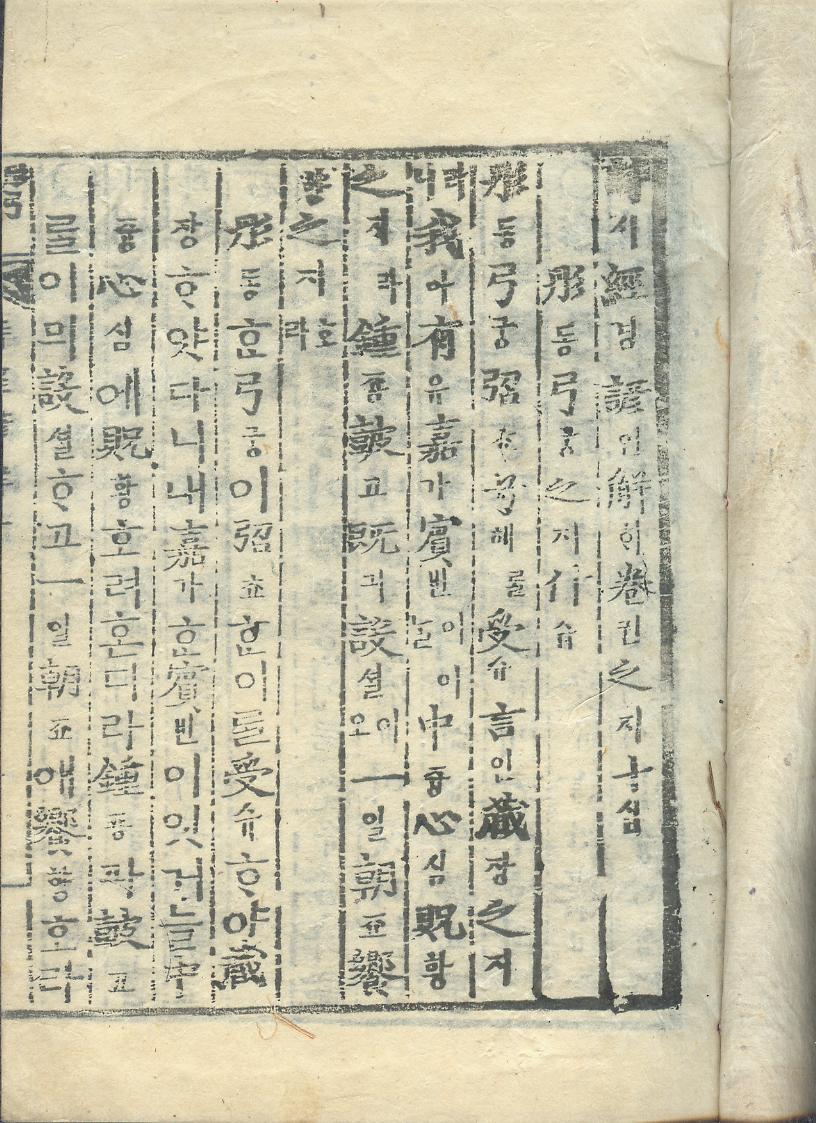 詩시經경諺언解ᄒᆡ卷권之지十십
彤동弓궁之지什습
彤동弓궁弨쵸兮혜를受슈言언藏장之지
니라我아有유嘉가賓빈이어늘中듕心심貺황
之지라鍾죵鼓고既긔設셜이오一일朝죠饗
향之지호라
彤동ᄒᆞᆫ弓궁이弨쵸ᄒᆞᆫ이를受슈ᄒᆞ야藏
장ᄒᆞ얏다니내嘉가ᄒᆞᆫ賓빈이잇거늘中
듕心심에貺황호려혼디라鍾죵과鼓고
를이믜設셜ᄒᆞ고一일朝죠애饗향호라